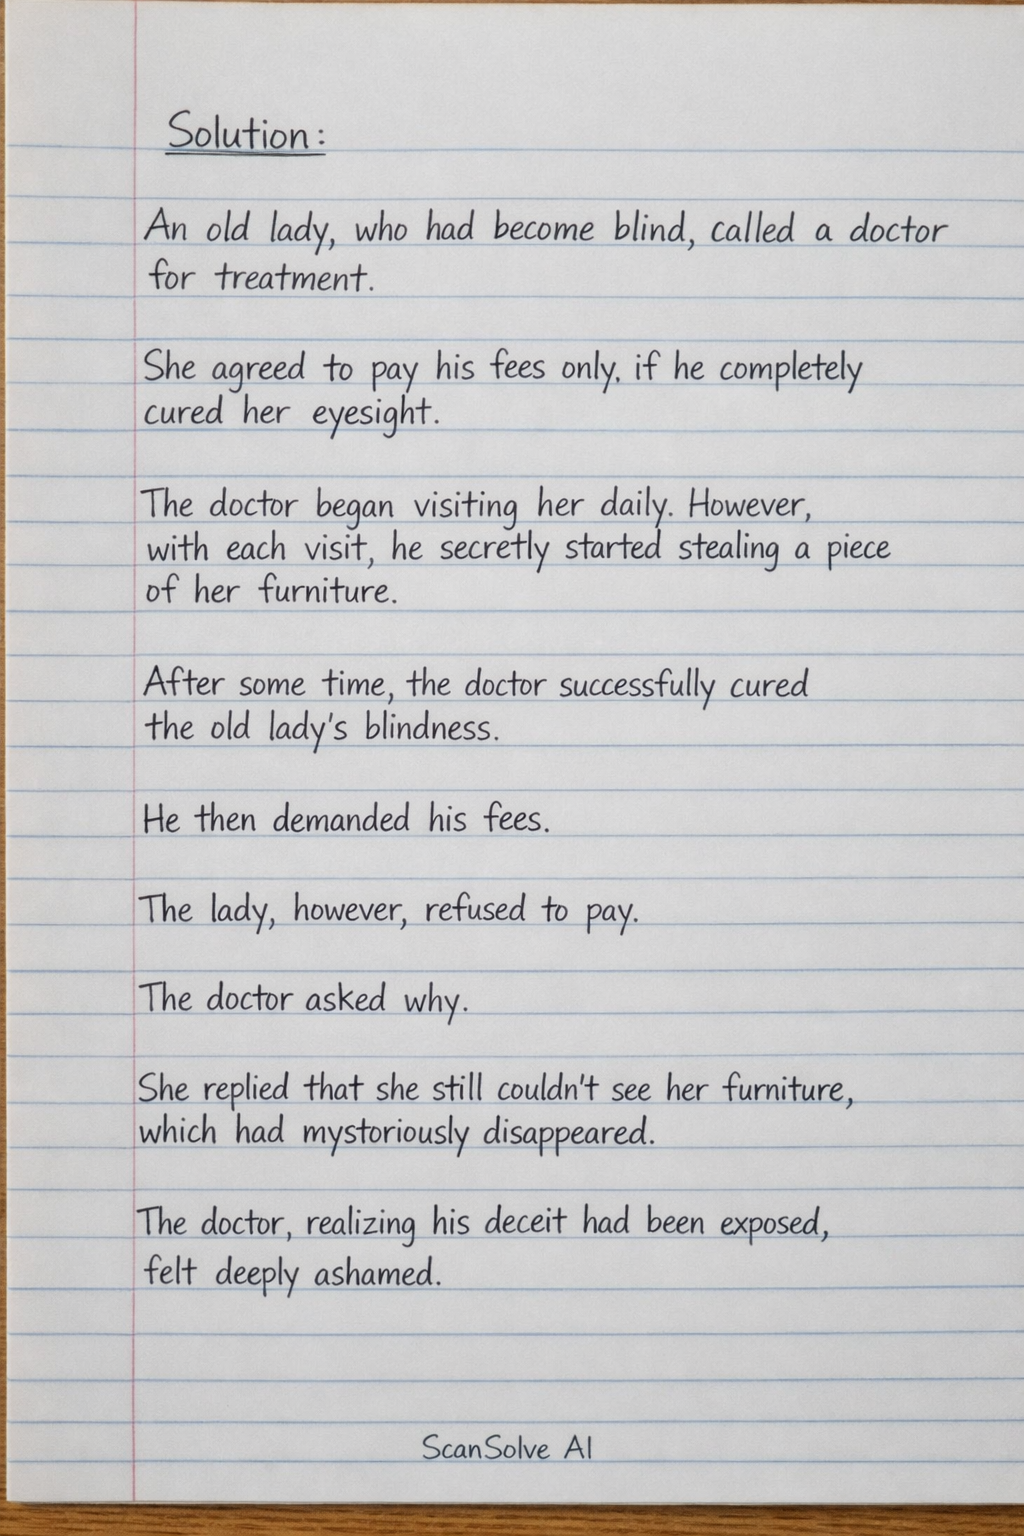 Solution:
An old lady, who had become blind, called a doctor
for treatment.
She agreed to pay his fees only, if he completely
cured her eyesight.
The doctor began visiting her daily. However,
with each visit, he secretly started stealing a piece
of her furniture.
After some time, the doctor successfully cured
the old lady's blindness.
He then demanded his fees.
The lady, however, refused to pay.
The doctor asked why.
She replied that she still couldn't see her furniture,
which had mystoriously disappeared.
The doctor, realizing his deceit had been exposed,
felt deeply ashamed.
ScanSolve AI